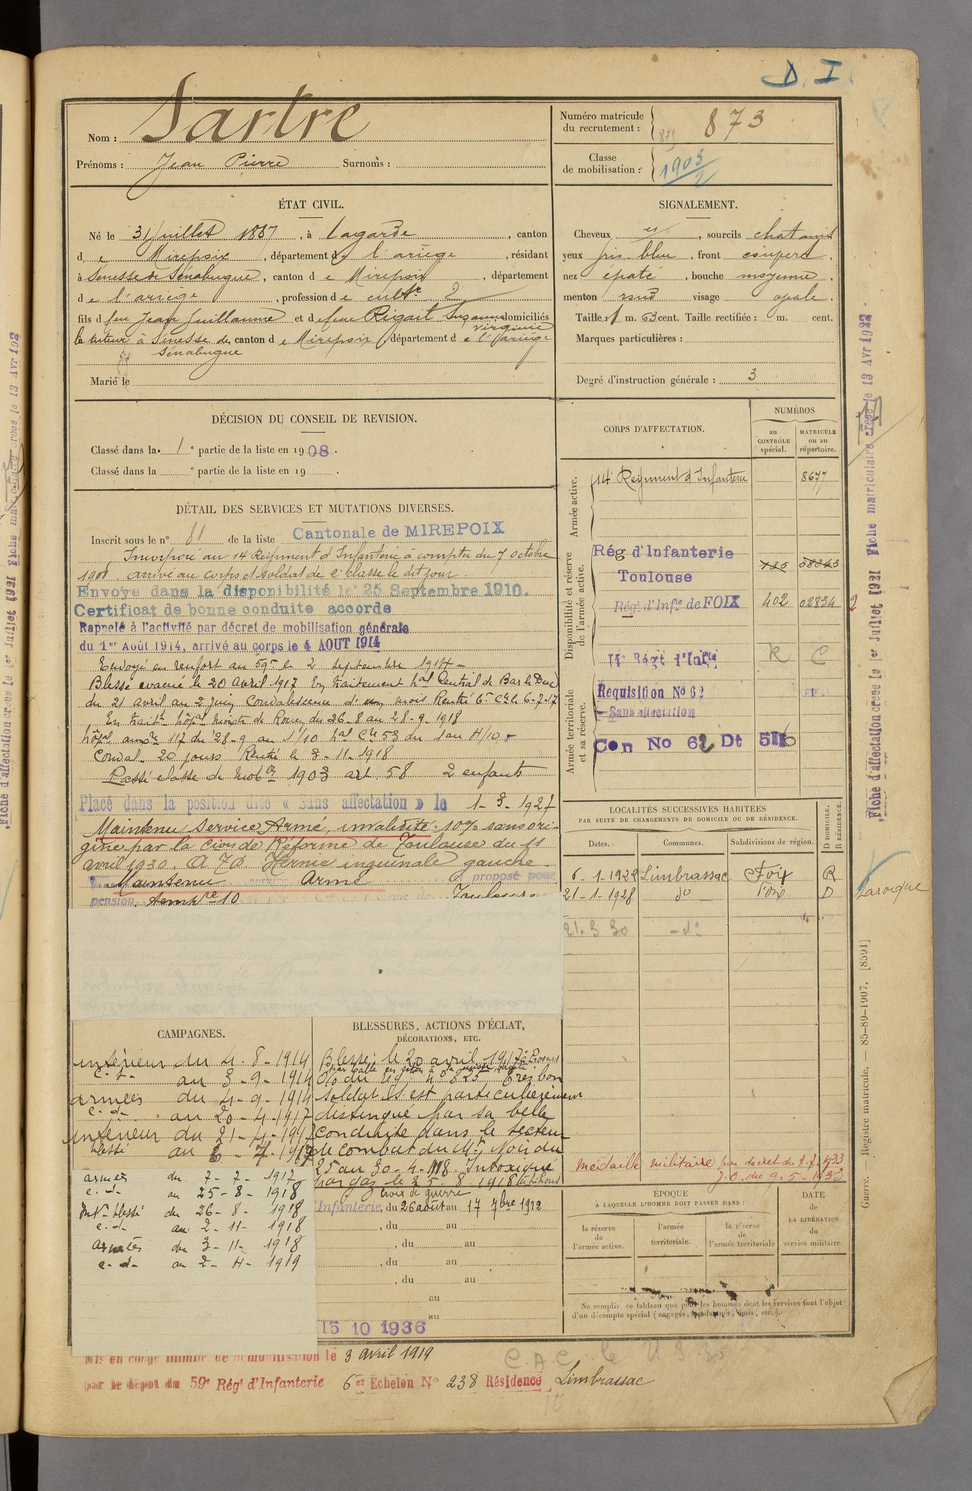 D. I.
Nom : Sartre
Prénoms : Jean Pierre Surnoms :
Numéro matricule du recrutement : 873
Classe de mobilisation : 1903/2
ÉTAT CIVIL.
Né le 31 juillet 1887, à Lagarde, canton
d e Mirepoix, département de l'ariège, résidant
à Senesse de Senabugue, canton d e Mirepoix, département
d e l'ariege, profession d e cultr 2
fils d feu Jean Guillaume et d e feue Rigail Suzanne Virginie domiciliés
le tuteur à Senesse de Senabugue canton d e Mirepoix département d e l'ariège
Marié le
SIGNALEMENT.
Cheveux et, sourcils chatains
yeux gris bleu, front couvert,
nez épaté, bouche moyenne,
menton rond visage ovale.
Taille : 1 m. 63 cent. Taille rectifiée : m. cent.
Marques particulières :
Degré d'instruction générale : 3
DÉCISION DU CONSEIL DE REVISION.
Classé dans la 1e partie de la liste en 1908.
Classé dans la e partie de la liste en 19
DÉTAIL DES SERVICES ET MUTATIONS DIVERSES.
Inscrit sous le n° 81 de la liste Cantonale de MIREPOIX
Incorporé au 14 Régiment d'Infanterie à compter du 7 octobre
1908. arrivé au corps et soldat de 2e classe le dit jour.
Envoyé dans la disponibilité le 25 Septembre 1910.
Certificat de bonne conduite accordé
Rappelé à l'activité par décret de mobilisation générale
du 1er Août 1914, arrivé au corps le 4 AOUT 1914
Envoyé en renfort au 59e le 2 septembre 1914 -
Blessé evacué le 20 Avril 1917 En traitement hal Central de Bar le Duc
du 21 avril au 2 juin Convalescence d'un mois Rentré 6e Cie le 6-7-17
En trait. hôpal mixte de Rouen du 26-8 au 28-9-1918
hôpal ampre 117 du 28-9 au 1/10
Conval. 20 jours Rentré le 3-11-1918
Passé classe de mobon 1903 art. 58 2 enfants
Placé dans la position dite « Sans affectation » le 1-3-1927
Maintenu Service Armé, invalidité 10% sans ori-
gine par la Cion de Réforme de Toulouse du 11
avril 1930. Hernie inguinale gauche.
Maintenu service Armé proposé pour
pension, 10 Toulouse
CORPS D'AFFECTATION.
NUMÉROS
au CONTRÔLE spécial.
MATRICULE ou au répertoire.
Armée active.
14e Régiment d'Infanterie 8677
Disponibilité et réserve de l'armée active.
Rég. d'Infanterie
Toulouse
Régt d'Infie de FOIX 402 02834
14e Régt d'Infie
Armée territoriale et sa réserve.
Requisition No 62
Sans affectation
LOCALITÉS SUCCESSIVES HABITÉES
PAR SUITE DE CHANGEMENTS DE DOMICILE OU DE RÉSIDENCE.
Dates. Communes. Subdivisions de région. D DOMICILE. R RÉSIDENCE.
6-1-1922 Limbrassac Foix R
21-1-1928 do Foix D
21.3.30 - do
Laroque
CAMPAGNES.
intérieur du 4-8-1914
c. d. au 3-9-1914
armées du 4-9-1914
c. d. au 20-4-1917
intérieur du 21-4-1917
blessé au 6-7-1917
armées du 7-7-1917
c. d. au 25-8-1918
Intr blessé du 26-8-1918
c. d. au 2-11-1918
armées du 3-11-1918
c. d. au 2-4-1919
BLESSURES, ACTIONS D'ÉCLAT,
DÉCORATIONS, ETC.
Blessé le 20 avril 1917 à Prosnes
O/o du Rgt no 525 Très bon
soldat s'est particulièrement
distingué par sa belle
conduite dans le secteur
de combat du Mt Noir du
25 au 30-4-1918. Intoxiqué
par gaz le 25-8-1918
Croix de guerre
Infanterie, du 26 août au 17 7bre 1912
, du au
, du au
, du au
au
au
15 10 1936
médaille militaire par décret du
J.O. du 9-5-1933
ÉPOQUE
À LAQUELLE L'HOMME DOIT PASSER DANS :
la réserve de l'armée active.
l'armée territoriale.
la réserve de l'armée territoriale
DATE de LA LIBÉRATION du service militaire.
Ne remplir ce tableau que pour les hommes dont les services font l'objet
d'un décompte spécial
Mis en congé illimité de démobilisation le 3 avril 1919
par le dépôt du 59e Régt d'Infanterie 6er Echelon No 238 Résidence Limbrassac
Fiche matriculaire créée le 13 Avr 1922
Fiche d'affectation créée le 1er Juillet 1921
Guerre. — Registre matricule. — 85-89-1907. [8591]